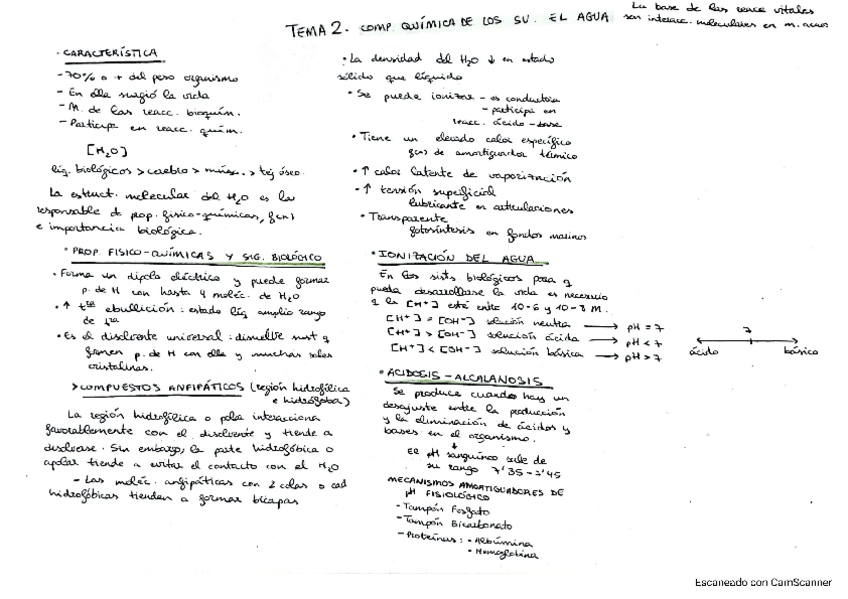 TEMA 2. COMP. QUÍMICA DE LOS SV. EL AGUA
La base de las reacc vitales
son interacc. moleculares en m. acuos
· CARACTERÍSTICA
- 70% o + del peso organismo
- En ella surgió la vida
- M. de las reacc. bioquím.
- Participa en reacc. quím.
[H₂O]
líq. biológicos > cerebro > músc. > tej óseo
La estruct. molecular del H₂O es la
responsable de prop. físico-químicas, f(n)
e importancia biológica.
• PROP. FISICO-QUÍMICAS Y SIG. BIOLÓGICO
• Forma un dipolo eléctrico y puede formar
p. de H con hasta 4 moléc. de H₂O
• ↑ tra ebullición: estado líq amplio rango
de tra
• Es el disolvente universal: disuelve sust q
formen p. de H con ella y muchas sales
cristalinas.
> COMPUESTOS ANFIPÁTICOS (región hidrofílica
e hidrófoba)
La región hidrofílica o polar interacciona
favorablemente con el disolvente y tiende a
disolverse. Sin embargo, la parte hidrofóbica o
apolar tiende a evitar el contacto con el H₂O
- Las moléc. anfipáticas con 2 colas o cad
hidrofóbicas tienden a formar bicapas
• La densidad del H₂O ↓ en estado
sólido que líquido
• Se puede ionizar - es conductora
- participa en
reacc. ácido-base
• Tiene un elevado calor específico
f(n) de amortiguador térmico
• ↑ calor latente de vaporización
• ↑ tensión superficial
lubricante en articulaciones
• Transparente
fotosíntesis en fondos marinos
• IONIZACIÓN DEL AGUA
En los sists biológicos para q
pueda desarrollarse la vida es necesario
q la [H+] esté entre 10-6 y 10-8 M.
[H+] = [OH-] solución neutra → pH = 7
[H+] > [OH-] solución ácida → pH < 7
[H+] < [OH-] solución básica → pH > 7
7
ácido básico
• ACIDOSIS - ALCALANOSIS
Se produce cuando hay un
desajuste entre la producción
y la eliminación de ácidos y
bases en el organismo.
↓
El pH sanguíneo sale de
su rango 7'35 - 7'45
MECANISMOS AMORTIGUADORES DE
pH FISIOLÓGICO
- Tampón Fosfato
- Tampón Bicarbonato
- Proteínas: • Albúmina
• Hemoglobina
Escaneado con CamScanner